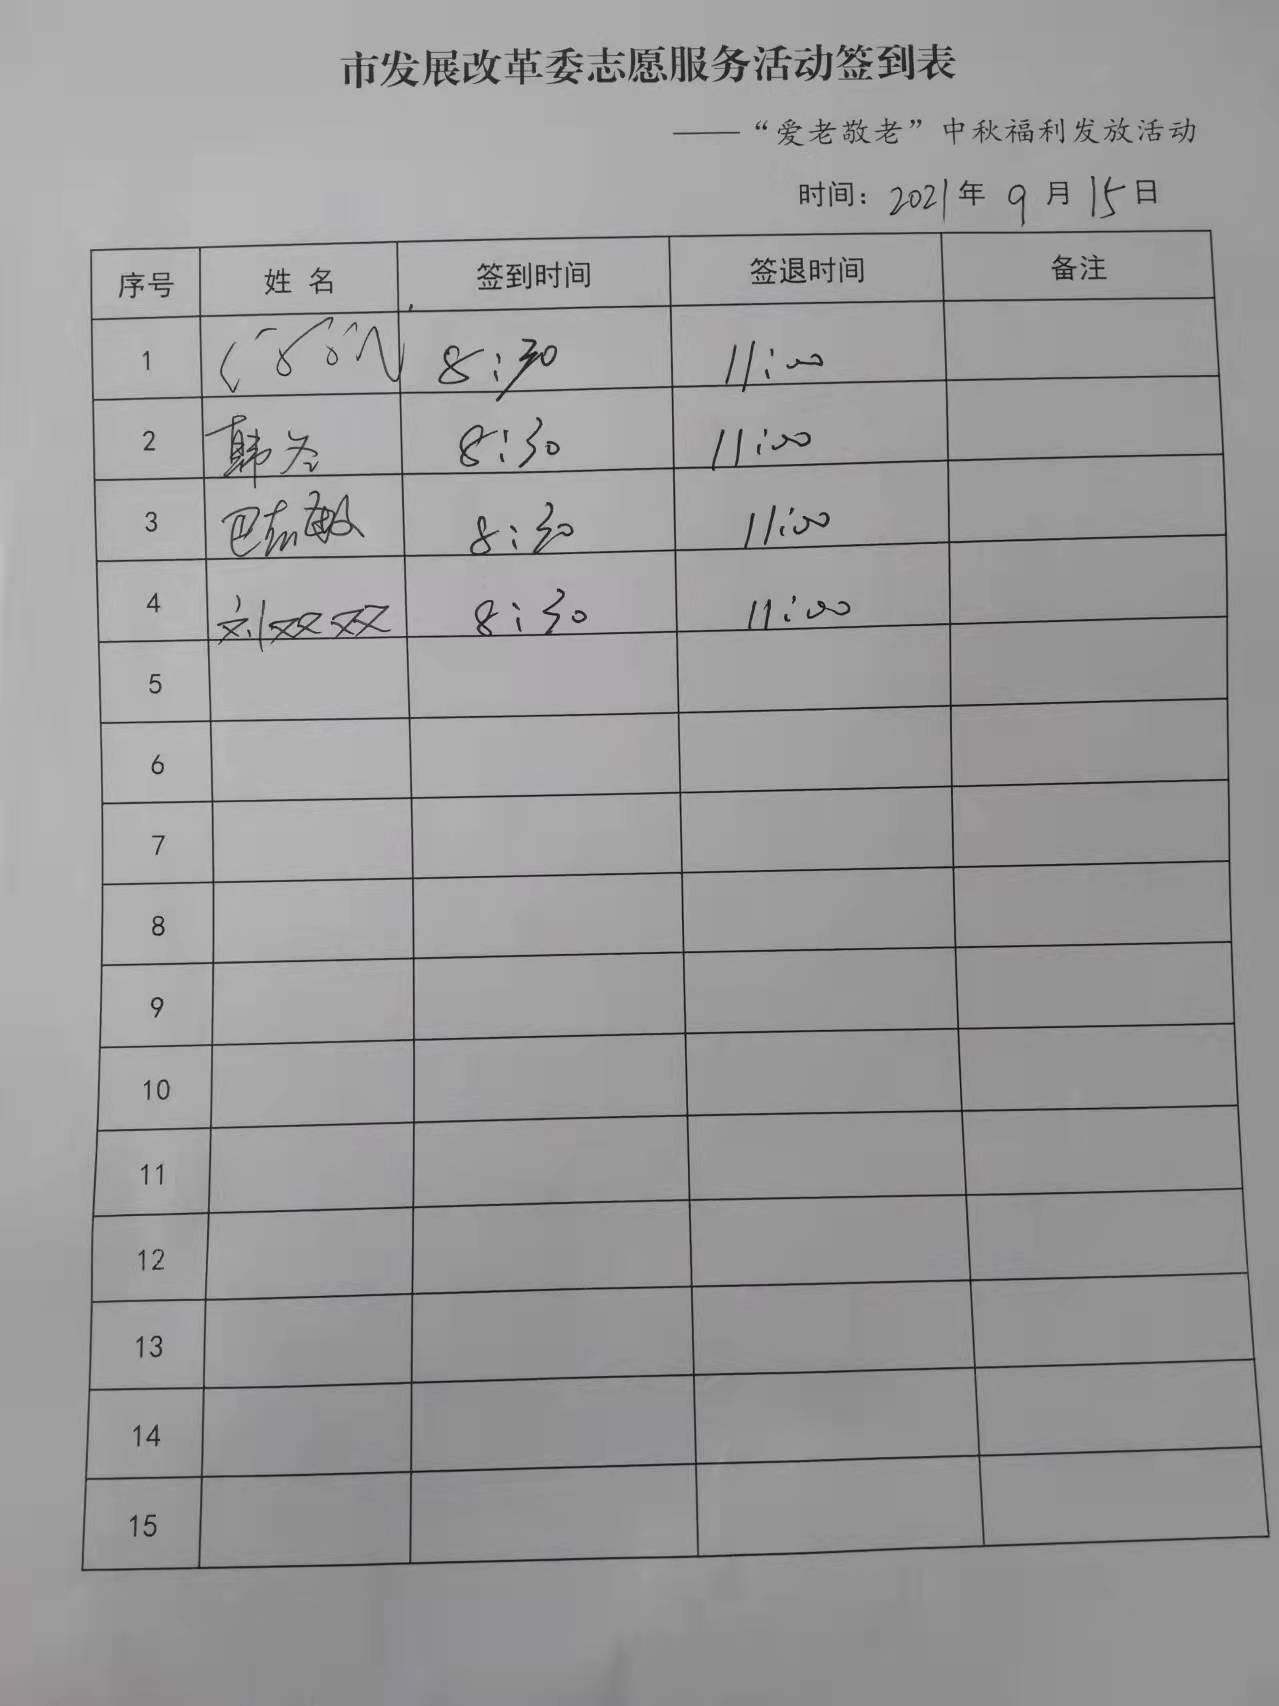 市发展改革委志愿服务活动签到表
——“爱老敬老”中秋福利发放活动
时间：2021年 9 月 15日
序号 姓 名 签到时间 签退时间 备注
1 8:30 11:00
2 韩 8:30 11:00
3 巴 敏 8:30 11:00
4 刘双双 8:30 11:00
5
6
7
8
9
10
11
12
13
14
15